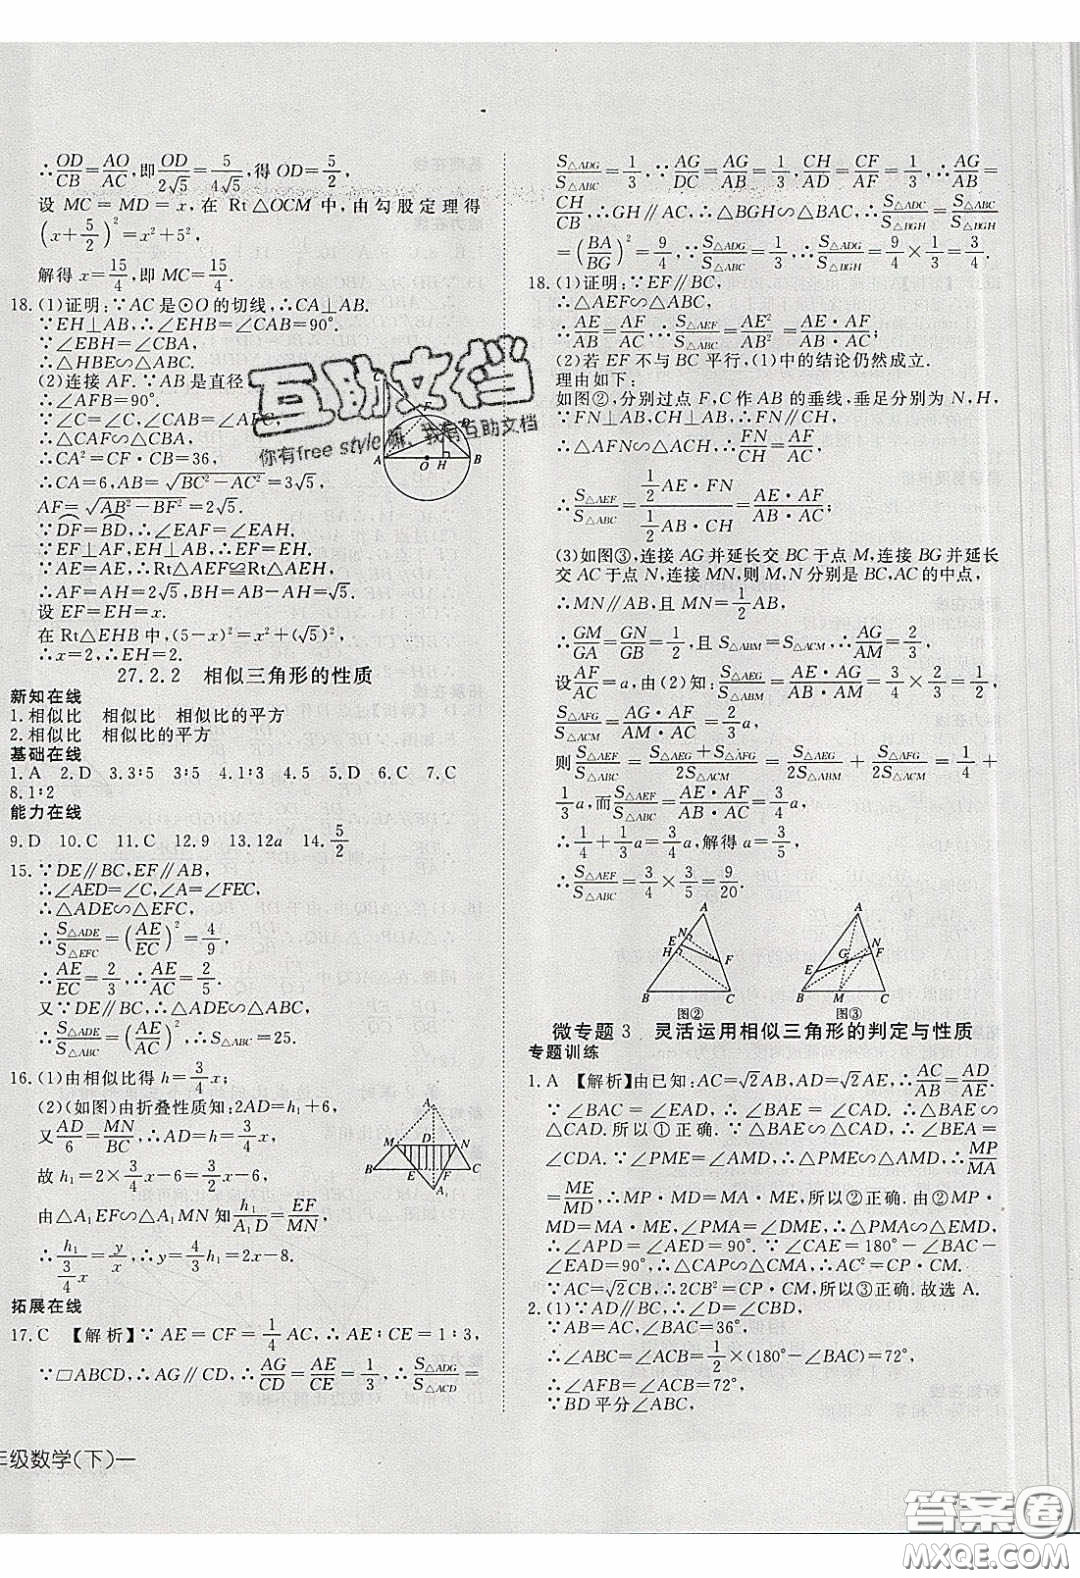 ∴OD/CB=AO/AC,即OD/2√5=5/4√5,得 OD=5/2,
设 MC=MD=x,在 Rt△OCM 中,由勾股定理得
(x+5/2)²=x²+5²,
解得 x=15/4,即 MC=15/4.
18.(1)证明:∵AC是⊙O的切线,∴CA⊥AB.
∵EH⊥AB,∴∠EHB=∠CAB=90°.
∵∠EBH=∠CBA,
∴△HBE∽△ABC.
(2)连接 AF.∵AB 是直径
∴∠AFB=90°.
∵∠C=∠C,∠CAB=
∴△CAF∽△CBA.
∴CA²=CF·CB=36,
∴CA=6,AB=√(BC²-AC²)=3√5,
AF=√(AB²-BF²)=2√5.
∵DF=BD,∴∠EAF=∠EAH.
∵EF⊥AF,EH⊥AB,∴EF=EH.
∵AE=AE,∴Rt△AEF≌Rt△AEH,
∴AF=AH=2√5,∴BH=AB-AH=√5.
设 EF=EH=x,
在 Rt△EHB 中,(5-x)²=x²+(√5)²,
∴x=2,∴EH=2.
27.2.2 相似三角形的性质
新知在线
1.相似比 相似比 相似比的平方
2.相似比 相似比的平方
基础在线
1.A 2.D 3.3∶5 3∶5 4.1∶3 4.5 5.D 6.C 7.C
8.1∶2
能力在线
9.D 10.C 11.C 12.9 13.12a 14.5/2
15.∵DE∥BC,EF∥AB,
∴∠AED=∠C,∠A=∠FEC,
∴△ADE∽△EFC,
∴S△ADE/S△EFC=(AE/EC)²=4/9,
∴AE/EC=2/3,∴AE/AC=2/5.
又∵DE∥BC,∴△ADE∽△ABC,
∴S△ADE/S△ABC=(AE/AC)²=4/25.
16.(1)由相似比得 h=3/4x;
(2)(如图)由折叠性质知:2AD=h₁+6,
又AD/6=MN/BC,∴AD=h=3/4x,
故 h₁=2×3/4x-6=3/2x-6,
由△A₁EF∽△A₁MN 知h₁/A₁D=EF/MN,
∴h₁/(3/4x)=y/x,∴y=4/3h₁=2x-8.
拓展在线
17.C 【解析】∵AE=CF=1/4AC,∴AE∶CE=1∶3,
∵□ABCD,∴AG∥CD,∴AG/CD=AE/CE=1/3,∴S△ADG/S△ACD=
年级数学(下)—
S△ADG/S△ABC=1/3,∵AG/DC=AG/AB=1/3,CH/AB=CF/AF=1/3,∴AG/AB=
CH/CB,∴GH∥AC,∴△BGH∽△BAC,∴S△ADC/S△BGH=S△ABC/S△BGH
=(BA/BG)²=9/4,∵S△ADG/S△ABC=1/3,∴S△ADG/S△BGH=9/4×1/3=3/4.
18.(1)证明:∵EF∥BC,
∴△AEF∽△ABC,
∴AE/AB=AF/AC,∴S△AEF/S△ABC=AE²/AB²=AE·AF/AB·AC;
(2)若 EF 不与 BC 平行,(1)中的结论仍然成立.
理由如下:
如图②,分别过点 F,C 作 AB 的垂线,垂足分别为 N,H,
∵FN⊥AB,CH⊥AB,∴FN∥CH,
∴△AFN∽△ACH,∴FN/CH=AF/AC,
∴S△AEF/S△ABC=(1/2AE·FN)/(1/2AB·CH)=AE·AF/AB·AC;
(3)如图③,连接 AG 并延长交 BC 于点 M,连接 BG 并延长
交 AC 于点 N,连接 MN,则 M,N 分别是 BC,AC 的中点,
∴MN∥AB,且 MN=1/2AB,
∴GM/GA=GN/GB=1/2,且 S△ABM=S△ACM,∴AG/AM=2/3,
设AF/AC=a,由(2)知:S△AEG/S△ABM=AG·AE/AM·AB=3/4×2/3=1/2,
S△AFG/S△ACM=AG·AF/AM·AC=2/3a,
则S△AEF/S△ABC=S△AEG+S△AFG/2S△ACM=S△AEG/2S△ABM+S△AFG/2S△ACM=1/4+
1/3a,而S△AEF/S△ABC=AE·AF/AB·AC=3/4a,
∴1/4+1/3a=3/4a,解得 a=3/5,
∴S△AEF/S△ABC=3/4×3/5=9/20.
图② 图③
微专题 3 灵活运用相似三角形的判定与性质
专题训练
1.A 【解析】由已知:AC=√2AB,AD=√2AE,∴AC/AB=AD/AE.
∵∠BAC=∠EAD,∴∠BAE=∠CAD.∴△BAE∽
△CAD.所以①正确.∵△BAE∽△CAD,∴∠BEA=
∠CDA.∵∠PME=∠AMD,∴△PME∽△AMD,∴MP/MA
=ME/MD,∴MP·MD=MA·ME,所以②正确.由②MP·
MD=MA·ME,∠PMA=∠DME,∴△PMA∽△EMD,
∴∠APD=∠AED=90°.∵∠CAE=180°-∠BAC-
∠EAD=90°,∴△CAP∽△CMA,∴AC²=CP·CM,
∵AC=√2CB,∴2CB²=CP·CM,所以③正确.故选 A.
2.(1)∵AD∥BC,∴∠D=∠CBD,
∵AB=AC,∠BAC=36°,
∴∠ABC=∠ACB=1/2×(180°-∠BAC)=72°,
∴∠AFB=∠ACB=72°,
∵BD 平分∠ABC,
互助文档
你有free style嘛,我有互助文档
答案圈
MXQE.COM